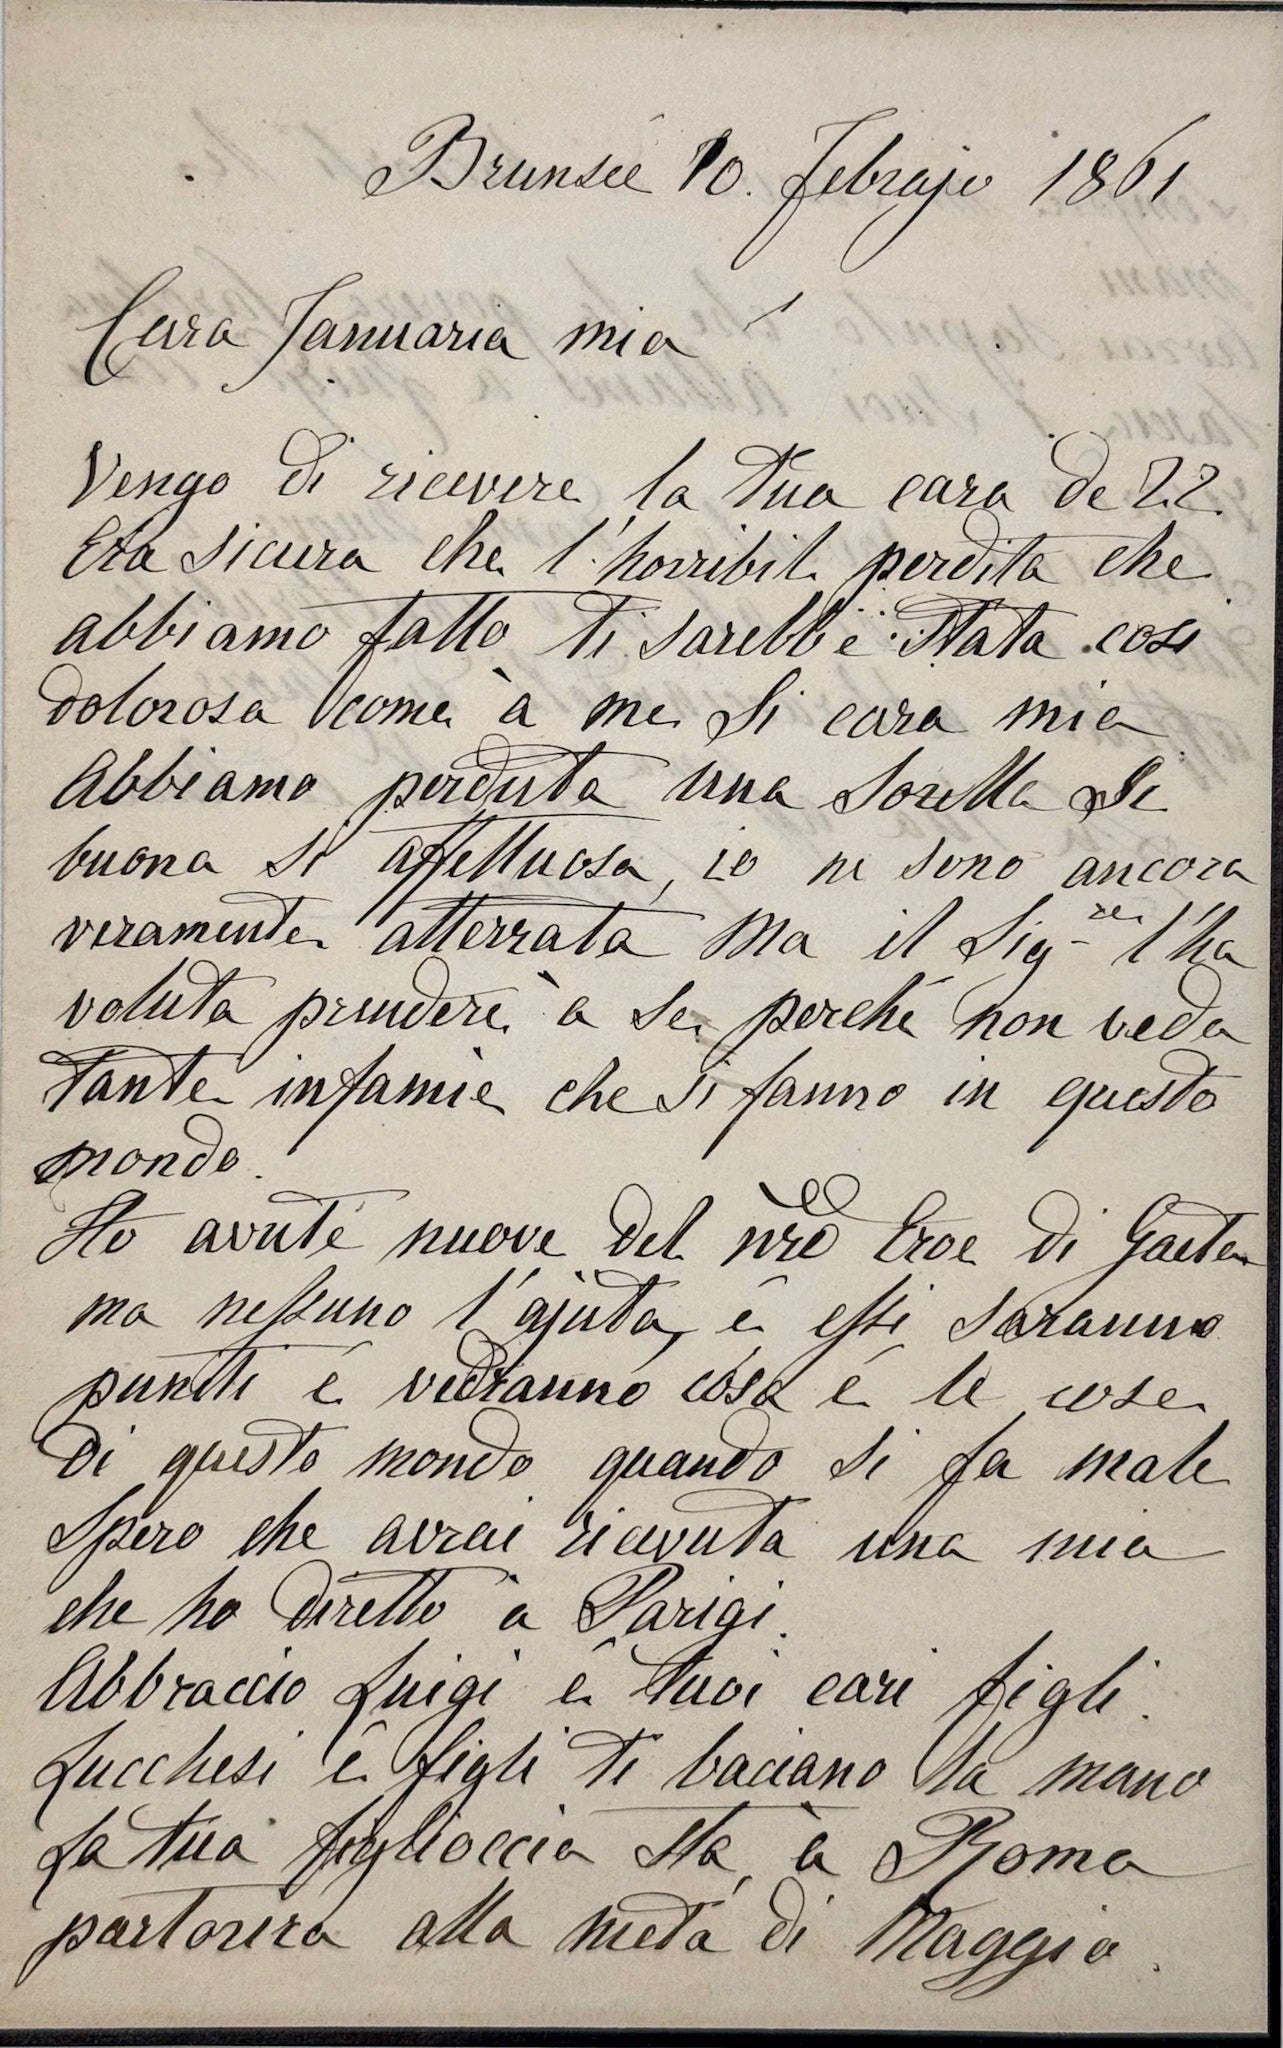 Brunsée 10. Febrajo 1861
Cara Januaria mia
Vengo di ricevere la tua cara de 22
Era sicura che l'horribile perdita che
abbiamo fatto ti sarebbe stata cosi
dolorosa come à me Si cara mia
Abbiamo perduta una Sorella Si
buona si affettuosa, io ne sono ancora
veramente atterrata Ma il Sig.re l'ha
voluta prendere à se perché non veda
tante infamie che si fanno in questo
mondo.
Ho avute nuove del nro Eroe di Gaeta
ma nessuno l'ajuta, é essi saranno
puniti é vedranno cosa é le cose
di questo mondo quando si fa male
Spero che avrai ricevuta una mia
che ho diretto à Parigi.
Abbraccio Luigi é tuoi cari figli.
Lucchesi é figli ti baciano la mano
La tua figlioccia sta à Roma
partorira alla metà di Maggio.